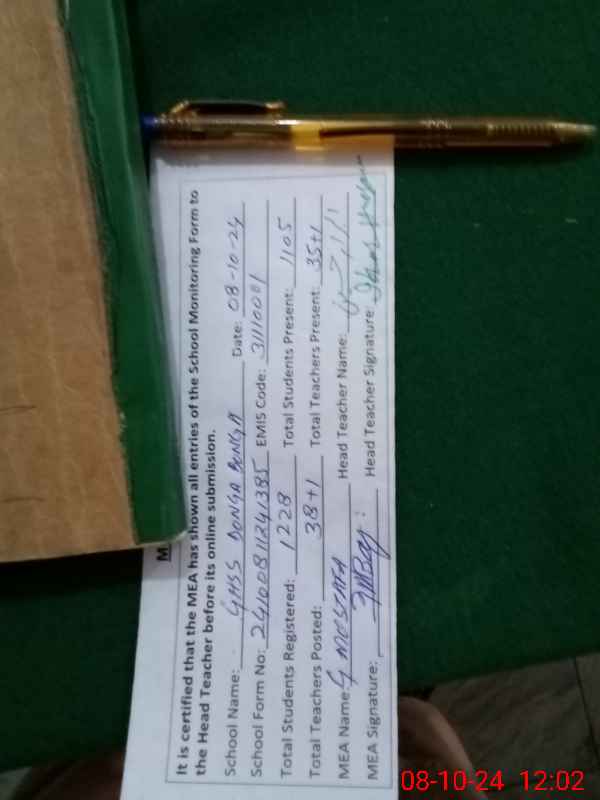 M
It is certified that the MEA has shown all entries of the School Monitoring Form to
the Head Teacher before its online submission.
School Name: GHSS DONGA BONGA Date: 08-10-24
School Form No: 24100811241385 EMIS Code: 31110001
Total Students Registered: 1228 Total Students Present: 1105
Total Teachers Posted: 38+1 Total Teachers Present: 35+1
MEA Name: G MUSTAFA Head Teacher Name:
MEA Signature: Head Teacher Signature:
08-10-24 12:02